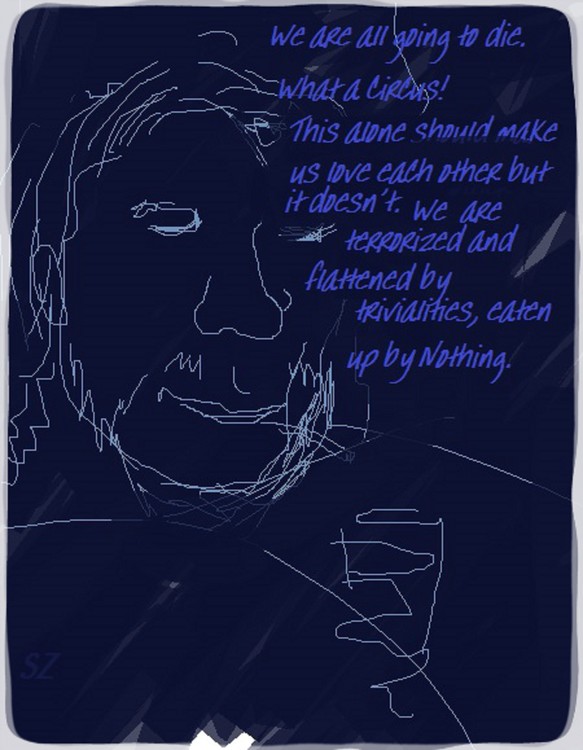 We are all going to die.
What a Circus!
This alone should make
us love each other but
it doesn't. We are
terrorized and
flattened by
trivialities, eaten
up by Nothing.
SZ